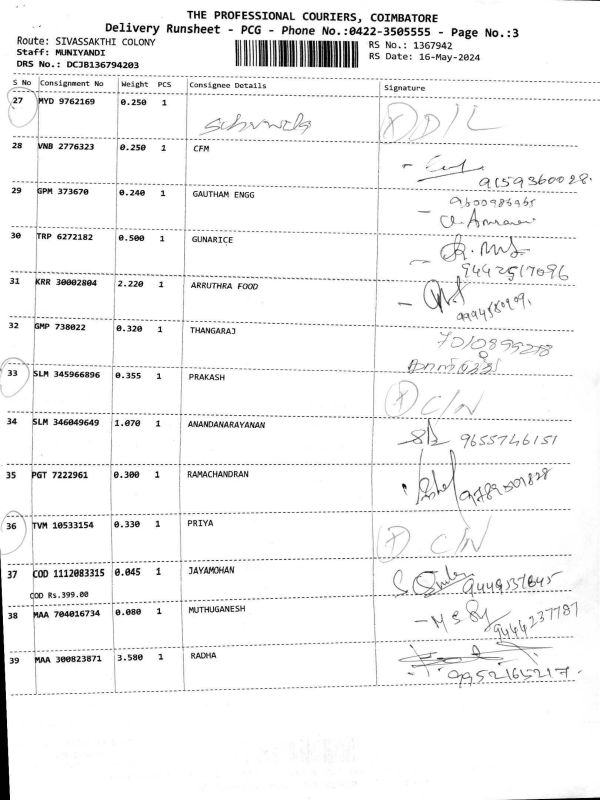 THE PROFESSIONAL COURIERS, COIMBATORE
Delivery Runsheet - PCG - Phone No.:0422-3505555 - Page No.:3
Route: SIVASSAKTHI COLONY
RS No.: 1367942
Staff: MUNIYANDI
RS Date: 16-May-2024
DRS No.: DCJB136794203
S No Consignment No Weight PCS Consignee Details Signature
27 MYD 9762169 0.250 1 X D/L
28 VNB 2776323 0.250 1 CFM
9159360028.
29 GPM 373670 0.240 1 GAUTHAM ENGG
30 TRP 6272182 0.500 1 GUNARICE
9442517096
31 KRR 30002804 2.220 1 ARRUTHRA FOOD
32 GMP 738022 0.320 1 THANGARAJ
33 SLM 345966896 0.355 1 PRAKASH X C/N
34 SLM 346049649 1.070 1 ANANDANARAYANAN 9655746151
35 PGT 7222961 0.300 1 RAMACHANDRAN
36 TVM 10533154 0.330 1 PRIYA X C/N
37 COD 1112083315 0.045 1 JAYAMOHAN
COD Rs.399.00
38 MAA 704016734 0.080 1 MUTHUGANESH 9444237787
39 MAA 300823871 3.580 1 RADHA
9952165217.